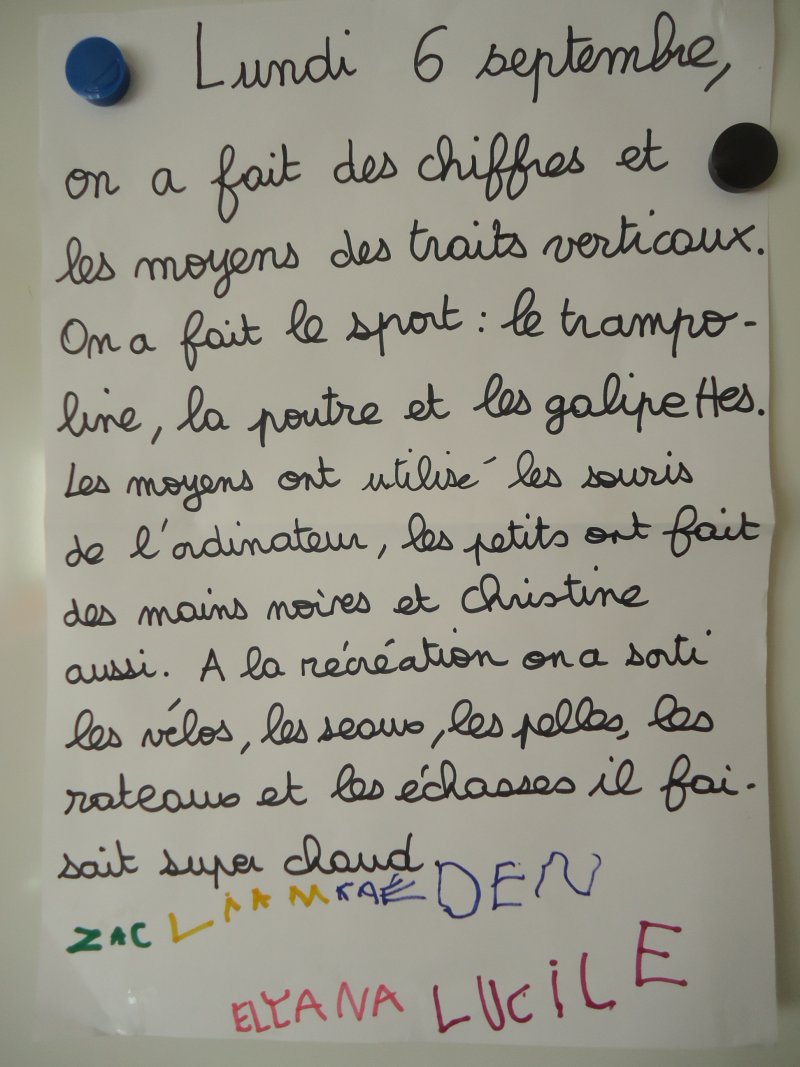 Lundi 6 septembre,
on a fait des chiffres et
les moyens des traits verticaux.
On a fait le sport : le trampo-
line, la poutre et les galipettes.
Les moyens ont utilisé les souris
de l'ordinateur, les petits ont fait
des mains noires et Christine
aussi. A la récréation on a sorti
les vélos, les seaux, les pelles, les
rateaux et les échasses il fai-
sait super chaud.
ZAC LIAM KAÉDEN
ELYANA LUCILE